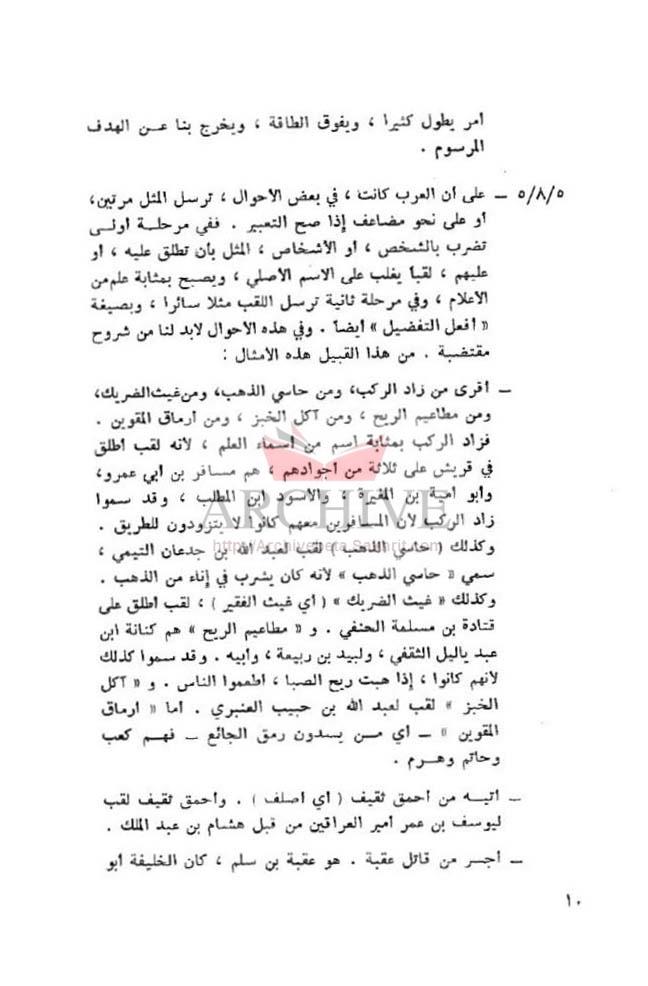 أمر يطول كثيرا ، ويفوق الطاقة ، ويخرج بنا عـن الهدف
المرسوم .
٥/٨/٥ ــ على أن العرب كانت ، في بعض الأحوال ، ترسل المثل مرتين،
أو على نحو مضاعف إذا صح التعبير . ففي مرحلـة أولـى
تضرب بالشخص ، أو الأشخاص ، المثل بأن تطلق عليه ، أو
عليهم ، لقباً يغلب على الاسم الأصلي ، ويصبح بمثابة علم من
الأعلام ، وفي مرحلة ثانية ترسل اللقب مثلا سائرا ، وبصيغة
« أفعل التفضيل » أيضاً . وفي هذه الأحوال لابد لنا من شروح
مقتضبة . من هذا القبيل هذه الأمثال :
ــ أقرى من زاد الركب، ومن حاسي الذهب، ومن غيث الضريك،
ومن مطاعيم الريح ، ومن آكل الخبز ، ومن أرماق المقوين .
فزاد الركب بمثابة اسم من أسماء العلم ، لأنه لقب أطلق
في قريش على ثلاثة من أجوادهم ، هم مسافر بن أبي عمرو،
وأبو أمية بن المغيرة ، والأسود ابن المطلب ، وقد سموا
ARCHIVE
زاد الركب لأن المسافرين معهم كانوا لا يتزودون للطريق .
http://Archivebeta.Sakhrit.com
وكذلك ( حاسي الذهب ) لقب لعبد الله بن جدعان التيمي ،
سمي « حاسي الذهب » لأنه كان يشرب في إناء من الذهب .
وكذلك « غيث الضريك » ( أي غيث الفقير ) ، لقب أطلق على
قتادة بن مسلمة الحنفي . و « مطاعيم الريح » هم كنانة ابن
عبد ياليل الثقفي ، ولبيد بن ربيعة ، وأبيه . وقد سموا كذلك
لأنهم كانوا ، إذا هبت ريح الصبا ، أطعموا الناس . و « آكل
الخبز » لقب لعبد الله بن حبيب العنبري . أما « أرماق
المقوين » ــ أي مـن يسدون رمق الجائع ــ فهـم كعب
وحاتم وهـرم .
ــ أتيـه من أحمق ثقيف ( أي أصلف ) . وأحمق ثقيف لقب
ليوسف بن عمر أمير العراقين من قبل هشام بن عبد الملك .
ــ أجـر من قاتل عقبة . هو عقبة بن سلم ، كان الخليفة أبو
١٠